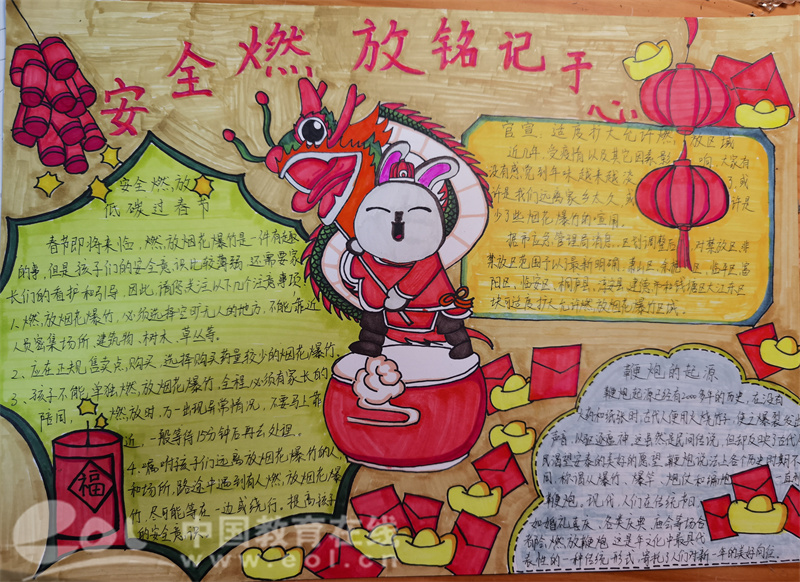 安全燃放铭记于心
安全燃放
低碳过春节
春节即将来临,燃放烟花爆竹是一件有趣
的事,但是孩子们的安全意识比较薄弱,还需要家
长们的看护和引导,因此,请您关注以下几个注意事项
1、燃放烟花爆竹,必须选择空旷无人的地方,不能靠近
人员密集场所、建筑物、树木、草丛等。
2、应在正规售卖点,购买、选择购买药量较少的烟花爆竹。
3、孩子不能单独燃放烟花爆竹,全程必须有家长的
陪同,燃放时,万一出现异常情况,不要马上靠
近,一般等待15分钟后再去处理。
4、嘱咐孩子们远离放烟花爆竹的人
和场所,路途中遇到有人燃放烟花爆
竹,尽可能等在一边或绕行。提高孩子
的安全意识。
福
官宣,适度扩大允许燃放区域
近几年,受疫情以及其它因素影响,大家有
没有感觉到年味越来越淡了,或
许是我们远离家乡太久,或许是
少了些烟花爆竹的
据市应急管理局消息,区划调整后,对禁放区、非
禁放区范围予以了最新明确,萧山区、余杭区、临平区、富
阳区、临安区、桐庐县、淳安县、建德市和钱塘区大江东区
块可适度扩大允许燃放烟花爆竹区域。
鞭炮的起源
鞭炮起源已经有2000多年的历史。在没有
火药和纸张时,古代人便用火烧竹子,使之爆裂发出
声音,以驱逐瘟神。这虽然是民间传说,但却反映了古代人
民渴望安泰的美好的愿望。鞭炮说法上各个历史时期不
同,称谓从爆竹、爆竿、炮仗和编炮 一直到
鞭炮。现代,人们在传统节日、
如婚礼喜庆、各类庆典、庙会等场合
都会燃放鞭炮,这是年文化中最具代
表性的一种传统形式,寄托了人们对新一年的美好向往
eol 中国教育在线
www.eol.cn